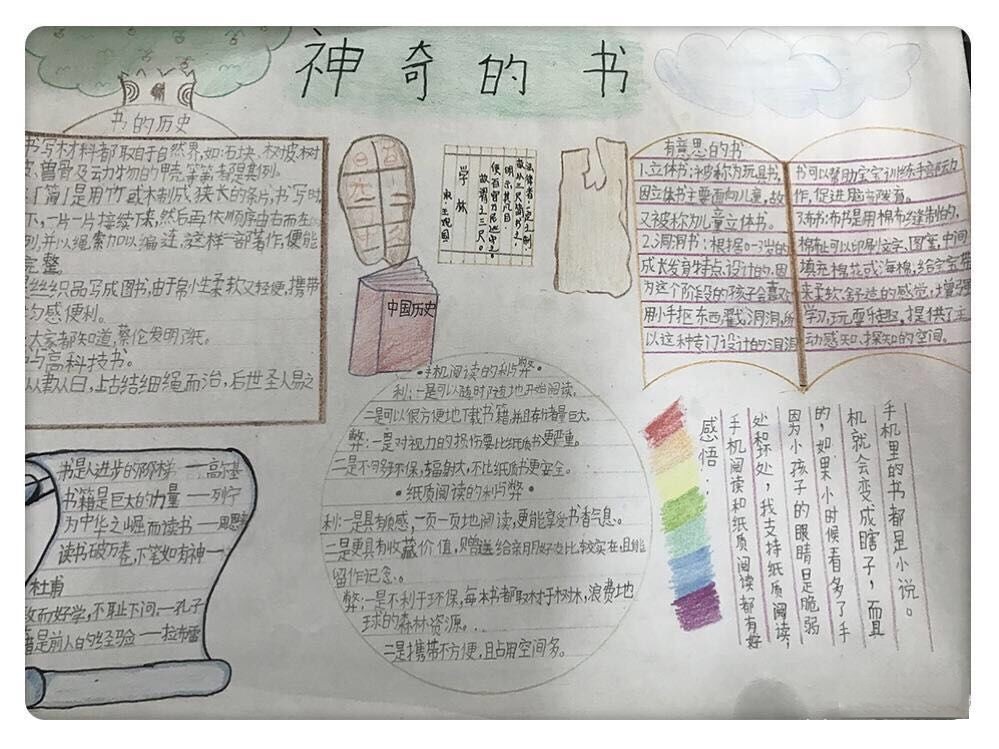 神奇的书
书的历史
书写材料都取自于自然界,如:石块、树坡、树
兽骨及动物的甲壳等等都是其例。
[简]是用竹或木制成狭长的条书,书写时
下,一片一片接续下来,然后再依顺序由右而左的
列,并以绳索加以编连,这样一部著作,便能
完整。
丝织品写成图书,由于帛小生柔软又轻便,携带
均感便利。
大家都知道,蔡伦发明了纸。
与高科技书。
从聿从曰,上古结细绳而治,后世圣人易之
学林
中国历史
有意思的书
1.立体书:亦被称为玩具书,
因立体书主要面向儿童,故
又被称为儿童立体书。
2.洞洞书:根据0-3岁的
成长发育特点设计的,因
为这个阶段的孩子会喜欢
用小手抠东西戳洞洞,所
以这种专门设计的洞洞
书可以帮助宝宝训练手部活力
作,促进脑部发育。
3.布书:布书是用棉布缝制的,
棉布上可以印刷文字、图案,中间
填充棉花或海棉,给宝宝带
来柔软、舒适的感觉,增强
学习、玩耍乐趣,提供了主
动感知、探知的空间。
·手机阅读的利与弊·
利:一是可以随时随地开始阅读。
二是可以很方便地下载书籍,并且存储量巨大。
弊:一是对视力的损伤要比纸质书更严重。
二是不够环保,辐射大,不比纸质书更安全。
·纸质阅读的利与弊·
利:一是具有质感,一页一页地阅读,更能享受书香气息。
二是更具有收藏价值,赠送给亲朋好友比较实在,且能
留作记念。
弊:一是不利于环保,每本书都取材于树木,浪费地
球的森林资源。
二是携带不方便,且占用空间多。
书是人进步的阶梯——高尔基
书籍是巨大的力量——列宁
为中华之崛而读书——周恩来
读书破万卷,下笔如有神——
杜甫
敏而好学,不耻下问——孔子
籍是前人的经验——拉布雷
手机里的书都是小说。
机就会变成瞎子,而且
的,如果小时候看多了手
因为小孩子的眼睛是脆弱
处和坏处,我支持纸质阅读,
手机阅读和纸质阅读都有好
感悟: